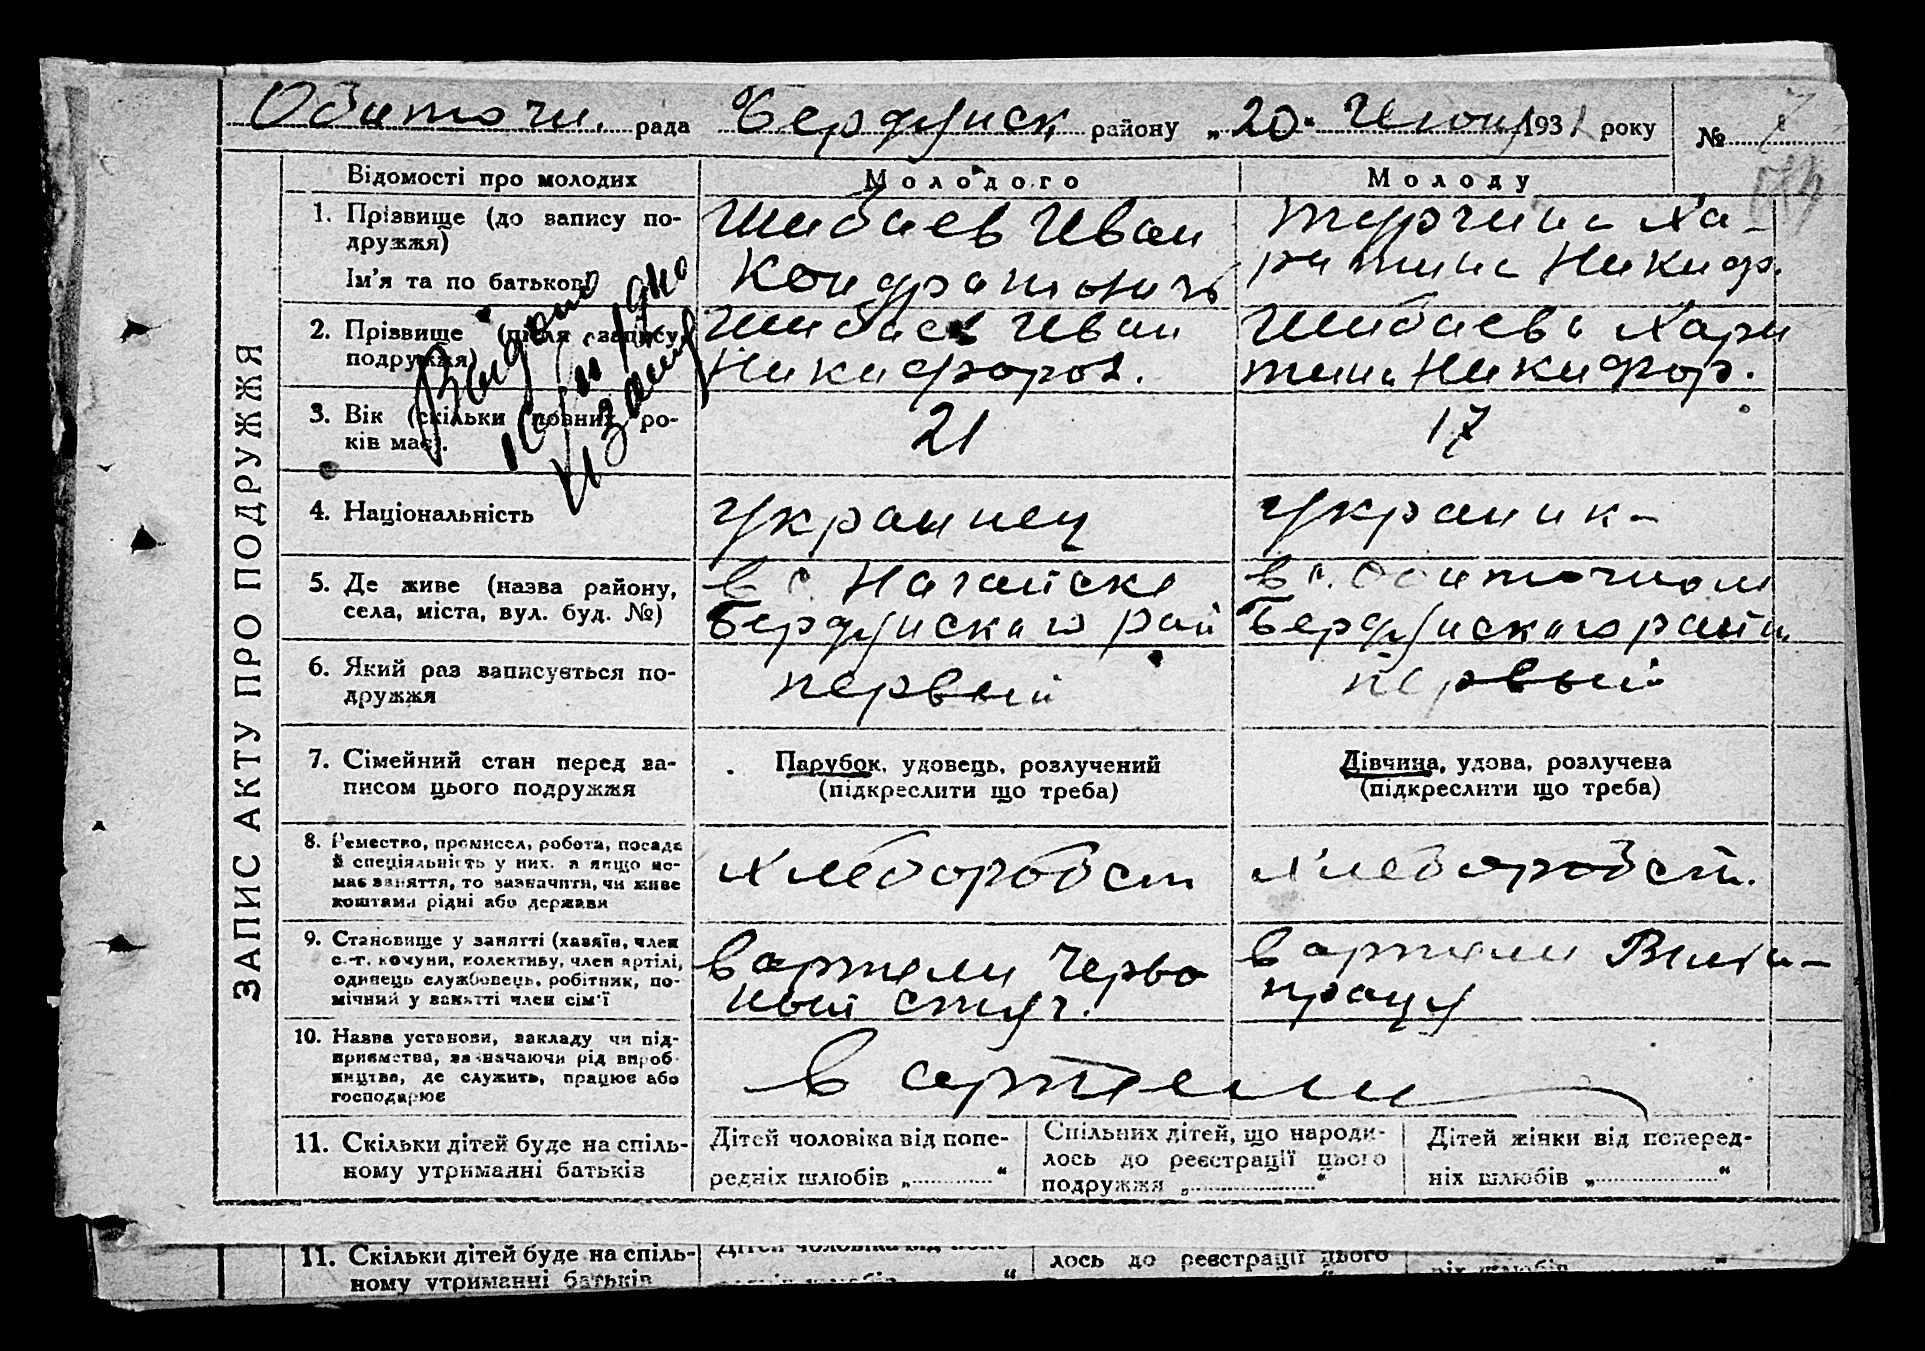 Обиточн. рада Бердянск району „20“ Июня 1931 року № 7
ЗАПИС АКТУ ПРО ПОДРУЖЖЯ
Відомості про молодих
Молодого
Молоду
1. Прізвище (до запису по-
дружжя)
Ім'я та по батькові
Шибаев Иван
Кондратович
Ха-
ритина Никиф.
2. Прізвище (після запису
подружжя)
Шибаев Иван
Никифоров.
Шибаева Хари
тина Никифор.
Видано
1940
3. Вік (скільки повних ро-
ків має).
21
17
4. Національність
Украинец
Украинк-
5. Де живе (назва району,
села, міста, вул. буд. №)
в с. Нагайске
Бердянскаго рай
в с. Обиточном
Бердянскаго райн
6. Який раз записується по-
дружжя
первый
первый
7. Сімейний стан перед за-
писом цього подружжя
Парубок, удовець, розлучений
(підкреслити що треба)
Дівчина, удова, розлучена
(підкреслити що треба)
8. Ремество, промисел, робота, посада
й спеціяльність у них, а якщо не-
має заняття, то зазначити, чи живе
коштами рідні або держави
хлеборобст
хлеборобст.
9. Становище у занятті (хазяїн, член
с.-г. комуни, колективу, член артілі,
одинець службовець, робітник, по-
мічний у занятті член сім'ї
в артели Черво
ный
в артели
працу
10. Назва установи, закладу чи під-
приємства, зазначаючи рід вироб-
ництва, де служить, працює або
господарює
в артели
11. Скільки дітей буде на спіль-
ному утриманні батьків
Дітей чоловіка від попе-
редніх шлюбів „ “
Спільних дітей, що народи-
лось до реєстрації цього
подружжя „ “
Дітей жінки від поперед-
ніх шлюбів „ “
11. Скільки дітей буде на спіль-
ному утриманні батьків
лось до реєстрації цього